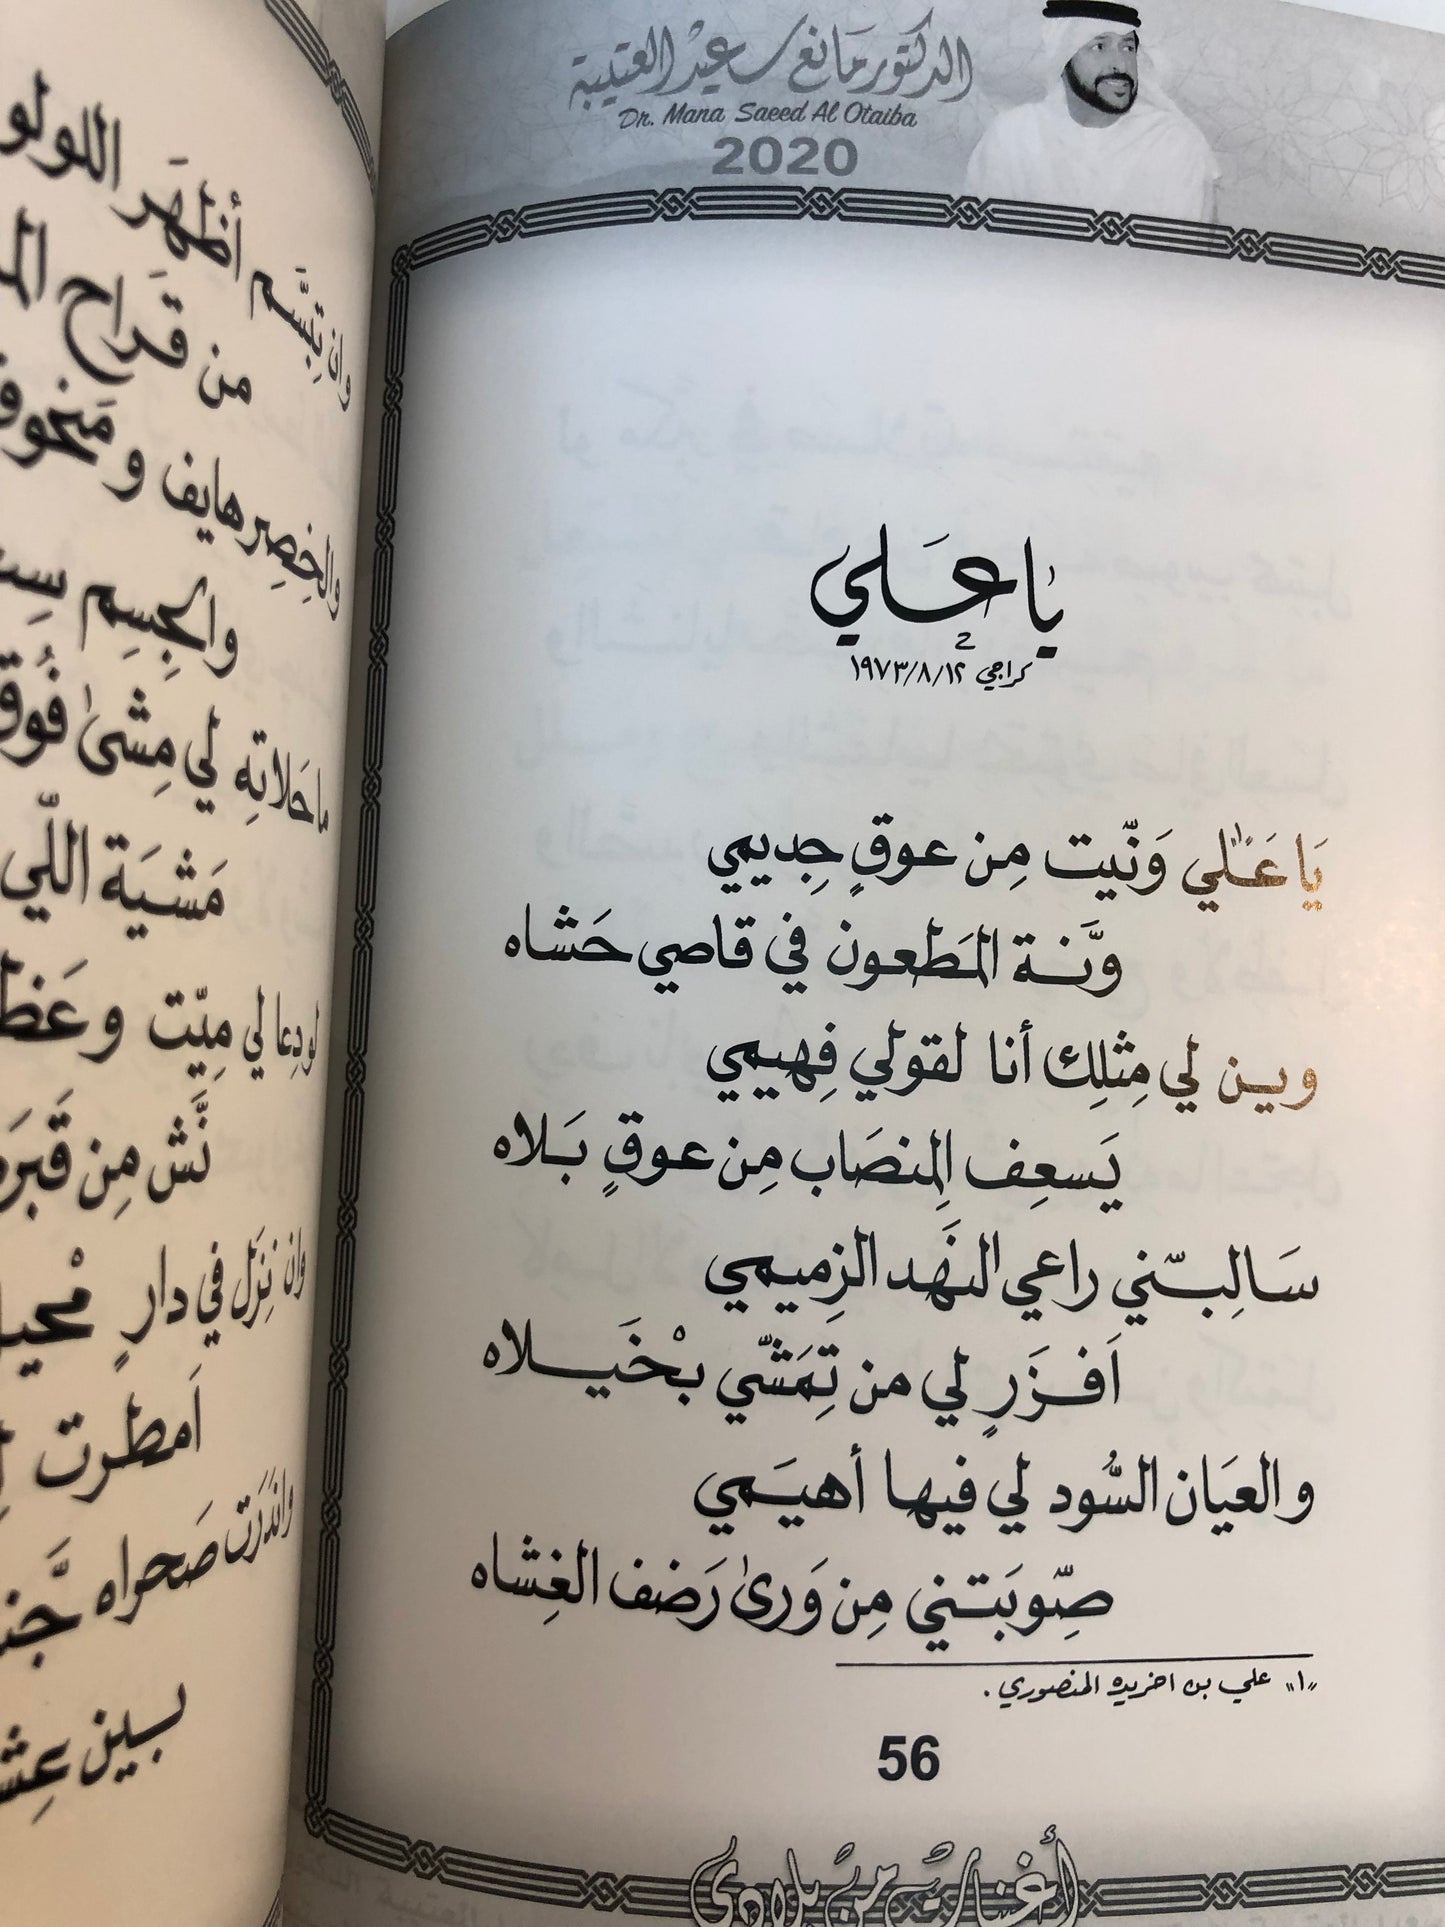 الدكتور مانع سعيد العتيبة
Dr. Mana Saeed Al Otaiba
2020
يا عَلي
2
كراچي ١٩٧٣/٨/١٢
يَا عَلي وَنّيت مِن عوقٍ جِديمي
ونَّة المَطعون في قاصي حَشاه
وين لي مِثلِك أنا لقولي فِهيمي
يَسعِف المِنصَاب مِن عوقٍ بَلاه
سَالِبتّني راعي النهَد الزِميمي
اَفزَرٍ لي من تِمَشّي بْخَيلاه
والعيَان السُّود لي فيها أهيَمي
صِّوبَتني مِن وَرىٰ رَضف الغِشاه
"١" علي بن اخريده المنصوري .
56
أغنيات من بلادي
وان تِبسَّم أظهَر اللولو
من قَراح
والخِصِر هايف و
والجِسِم
ما حَلاتِه لي مِشىٰ فُوق
مَشيَة اللّي
لو دِعا لي مِيّت و
نَّش مِن قَبرَه
وان نِزَل في دارٍ
اَمطرت
صَحراه
بين